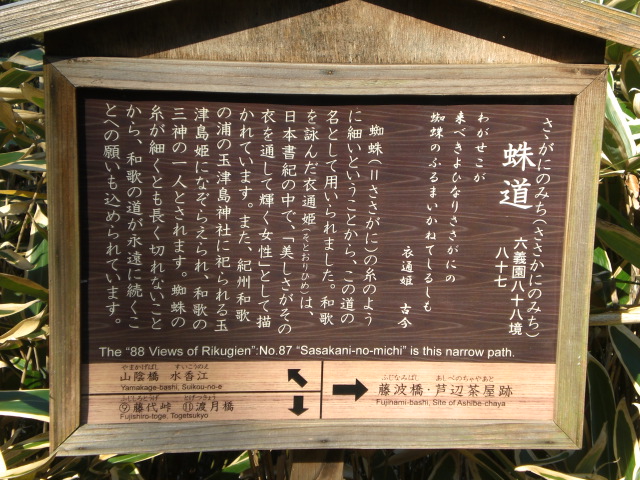 さゝがにのみち(ささかにのみち)
蛛道
六義園八十八境
八十七
わがせこが
来べきよひなりささがにの
蜘蛛のふるまいかねてしるしも
衣通姫 古今
蜘蛛(=ささがに)の糸のよう
に細いということから、この道の
名として用いられました。和歌
を詠んだ衣通姫(そとおりひめ)は、
日本書紀の中で、「美しさがその
衣を通して輝く女性」として描
かれています。また、紀州和歌
の浦の玉津島神社に祀られる玉
津島姫になぞらえられ、和歌の
三神の一人とされます。蜘蛛の
糸が細くとも長く切れないこと
から、和歌の道が永遠に続くこ
とへの願いも込められています。
The "88 Views of Rikugien":No.87 "Sasakani-no-michi" is this narrow path.
やまかげばし すいこうのえ
山陰橋 水香江
Yamakage-bashi, Suikou-no-e
ふじしろとうげ とげつきょう
⑨藤代峠 ⑪渡月橋
Fujishiro-toge, Togetsukyo
ふじなみばし あしべのちゃやあと
藤波橋・芦辺茶屋跡
Fujinami-bashi, Site of Ashibe-chaya